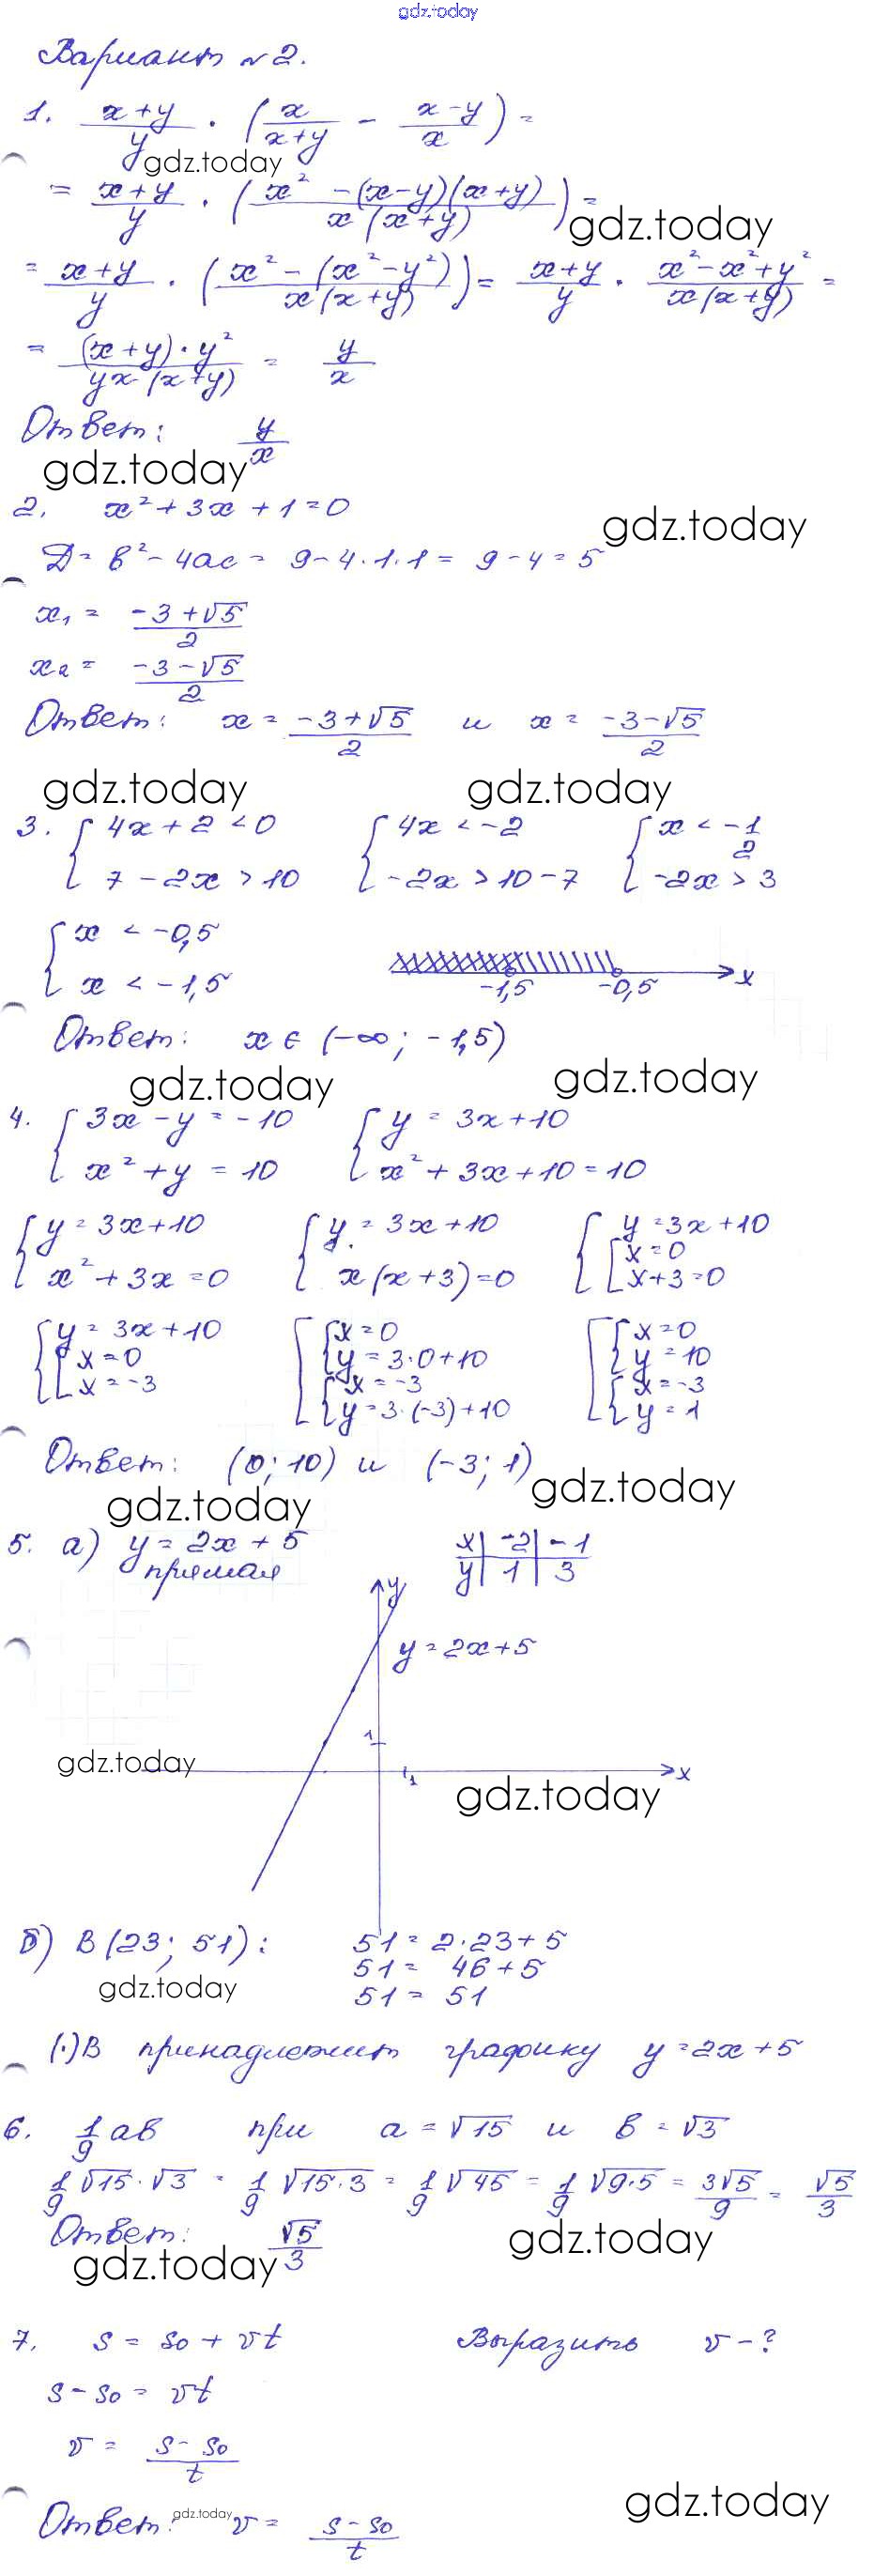 gdz.today
Вариант №2.
1. (x+y)/y · (x/(x+y) - (x-y)/x) =
gdz.today
= (x+y)/y · ((x² - (x-y)(x+y))/(x(x+y))) =
gdz.today
= (x+y)/y · ((x² - (x²-y²))/(x(x+y))) = (x+y)/y · (x²-x²+y²)/(x(x+y)) =
= ((x+y)·y²)/(yx·(x+y)) = y/x
Ответ: y/x
gdz.today
2. x² + 3x + 1 = 0
gdz.today
D = b² - 4ac = 9 - 4·1·1 = 9 - 4 = 5
x₁ = (-3+√5)/2
x₂ = (-3-√5)/2
Ответ: x = (-3+√5)/2 и x = (-3-√5)/2
gdz.today gdz.today
3. { 4x+2 < 0 { 4x < -2 { x < -1/2
7 - 2x > 10 -2x > 10-7 -2x > 3
{ x < -0,5
x < -1,5 -1,5 -0,5 x
Ответ: x ∈ (-∞; -1,5)
gdz.today gdz.today
4. { 3x - y = -10 { y = 3x+10
x² + y = 10 x² + 3x+10 = 10
{ y = 3x+10 { y = 3x+10 { y = 3x+10
x² + 3x = 0 x(x+3) = 0 [ x = 0
x+3 = 0
{ y = 3x+10 [ { x = 0 [ { x = 0
[ x = 0 y = 3·0+10 y = 10
x = -3 { x = -3 { x = -3
y = 3·(-3)+10 y = 1
Ответ: (0; 10) и (-3; 1)
gdz.today gdz.today
5. а) y = 2x + 5 x | -2 | -1
прямая y | 1 | 3
y
y = 2x+5
1
gdz.today
x
1
gdz.today
б) B(23; 51): 51 = 2·23+5
51 = 46+5
gdz.today
51 = 51
(·)B принадлежит графику y = 2x+5
6. 1/9 ab при a = √15 и b = √3
1/9 √15·√3 = 1/9 √15·3 = 1/9 √45 = 1/9 √9·5 = 3√5/9 = √5/3
Ответ: √5/3
gdz.today gdz.today
7. s = s₀ + vt Выразить v - ?
s - s₀ = vt
v = (s-s₀)/t
gdz.today
Ответ: gdz.today v = (s-s₀)/t